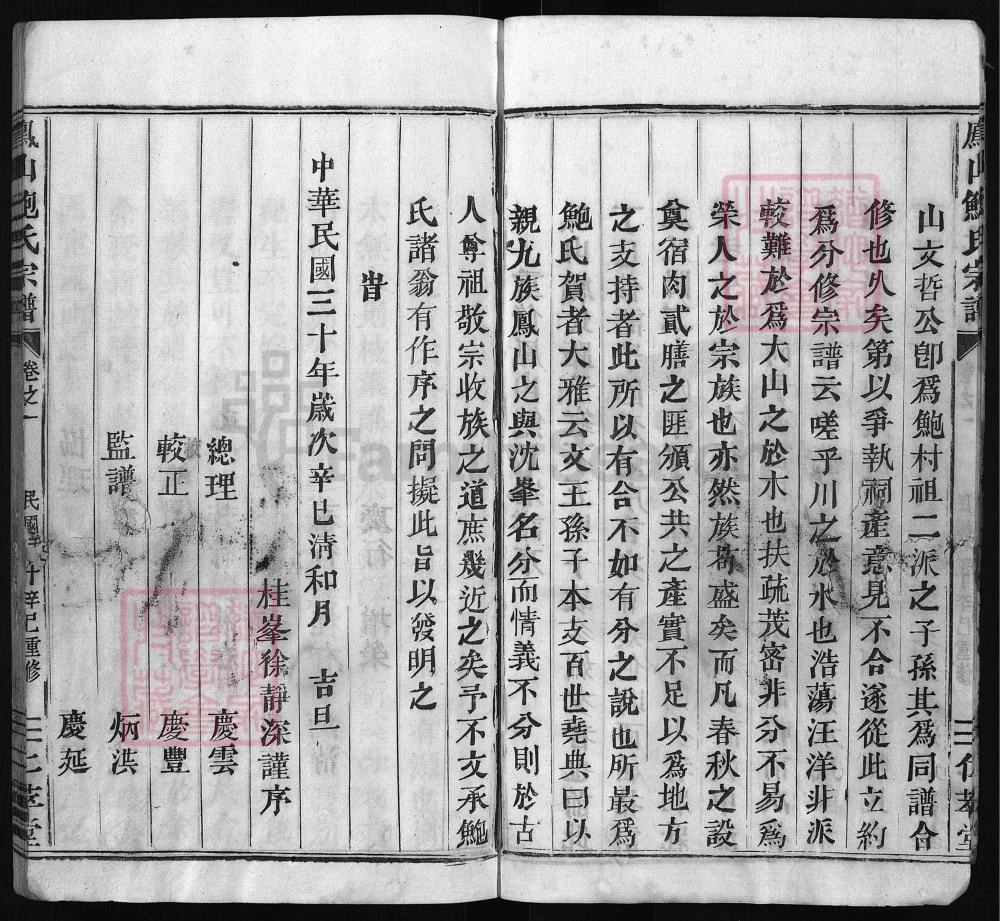 鳳山鮑氏宗譜
山文哲公卽爲鮑村祖二派之子孫其爲同譜合
修也久矣第以爭執祠產意見不合遂從此立約
爲分修宗譜云嗟乎川之於水也浩蕩汪洋非派
較難於爲大山之於木也扶疏茂密非分不易爲
榮人之於宗族也亦然族葛盛矣而凡春秋之設
奠宿肉貳膳之匪頒公共之產實不足以爲地方
之支持者此所以有合不如有分之說也所最爲
鮑氏賀者大雅云文王孫子本支百世堯典曰以
親九族鳳山之與沈峯名分而情義不分則於古
人尊祖敬宗收族之道庶幾近之矣予不文承鮑
氏諸翁有作序之問擬此旨以發明之
旹
中華民國三十年歲次辛巳清和月 吉旦
桂峯徐靜深謹序
總理 慶雲
較正 慶豐
監譜 炳洪
慶延
鳳山鮑氏宗譜 卷之一 民國三十辛巳重修 萃堂